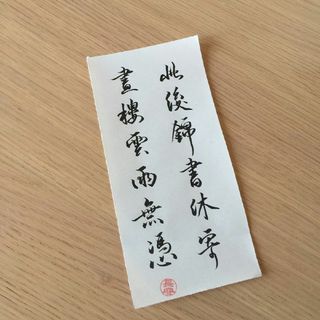 此後錦書休寄
畫樓雲雨無憑